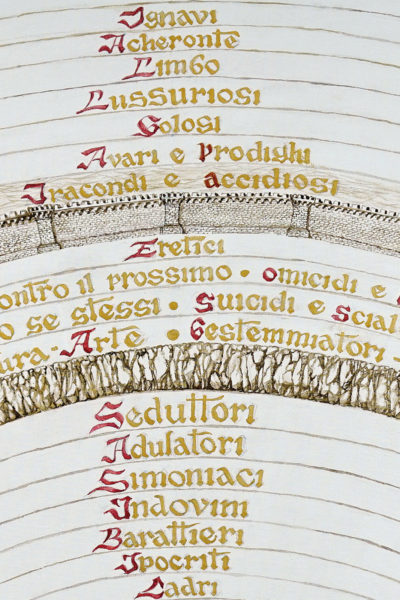 Ignavi
Acheronte
Limbo
Lussuriosi
Golosi
Avari e prodighi
Iracondi e accidiosi
Eretici
contro il prossimo • omicidi e
o se stessi • Suicidi e Scial
ura - Arte • Bestemmiatori -
Seduttori
Adulatori
Simoniaci
Indovini
Barattieri
Ipocriti
Ladri